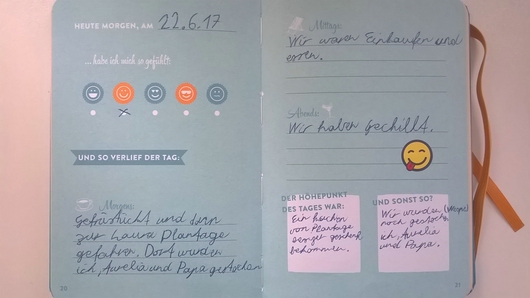 HEUTE MORGEN, AM 22.6.17
... habe ich mich so gefühlt:
UND SO VERLIEF DER TAG:
Morgens:
Gefrüstückt und dann
zur Laura Plantage
gefahren. Dort wurden
ich, Aurelia und Papa gestochen
20
Mittags:
Wir waren Einkaufen und
essen.
Abends:
Wir haben gechillt.
DER HÖHEPUNKT
DES TAGES WAR:
Ein
von Plantage
geschenkt
bekommen.
UND SONST SO?
Wir wurden (Wespe)
noch gestochen
ich, Aurelia
und Papa.
21